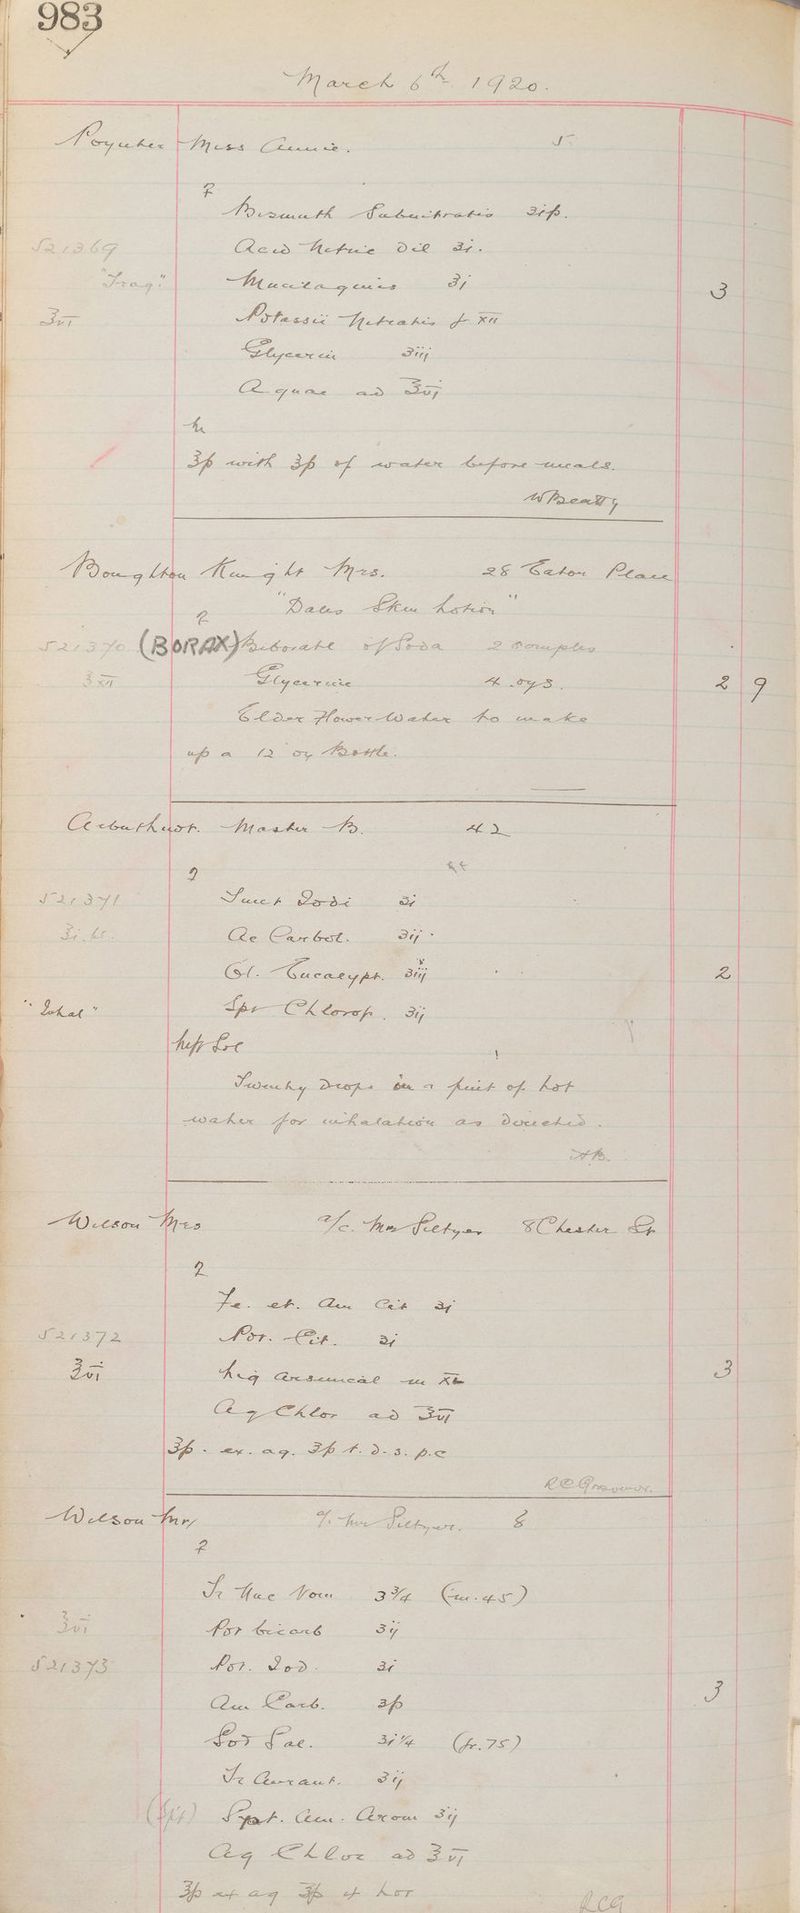 983
March 6th 1920.
Poynter Miss Annie. 5
℞
Bismuth Subnitratis ʒiſs.
521369 Acid Nitric Dil ʒi.
"Trag." Mucilaginis ℥i 3
℥vi Potassii Nitratis gr xii
Glycerin ʒiij
Aquae ad ℥vi
M
℥ſs with ℥ſs of water before meals.
W Beatty
Boughton Knight Mrs. 28 Eaton Place
℞ "Dales Skin Lotion"
521370 (BORAX) Biborate of Soda 2 scruples
℥xii Glycerine 4 ozs. 2 9
Elder Flower Water to make
up a 12 oz Bottle.
Arbuthnot. Master B. 42
℞
521371 Tinct Iodi ʒi
ʒi.ſs. Ac Carbol. ʒij
Ol. Eucalypt. ʒiij 2
"Inhal" Spr Chlorof. ʒij
Sol
Twenty drops in a pint of hot
water for inhalation as directed.
AB.
Wilson Mrs a/c. Mrs Seltyer 8 Chester St
℞
Fe. et. Am Cit ʒi
521372 Pot. Cit. ʒi
℥vi Liq Arsenical m XL 3
Aq Chlor ad ℥vi
℥ſs. ex. aq. ℥ſs t.d.s. p.c
R C Grosvenor.
Wilson Mr a/c. Mrs Seltyer. 8
℞
Tr Nuc Vom ʒ ¾ (m.45)
℥vi Pot bicarb ʒij
521373 Pot. Iod. ʒi
Am Carb. ʒſs 3
Sod Sal. ʒi ¼ (gr.75)
Tr Aurant. ʒij
(Spt) Spt. Am. Arom ʒij
Aq Chlor ad ℥vi
℥ſs ex aq ℥ſs hor
RCG